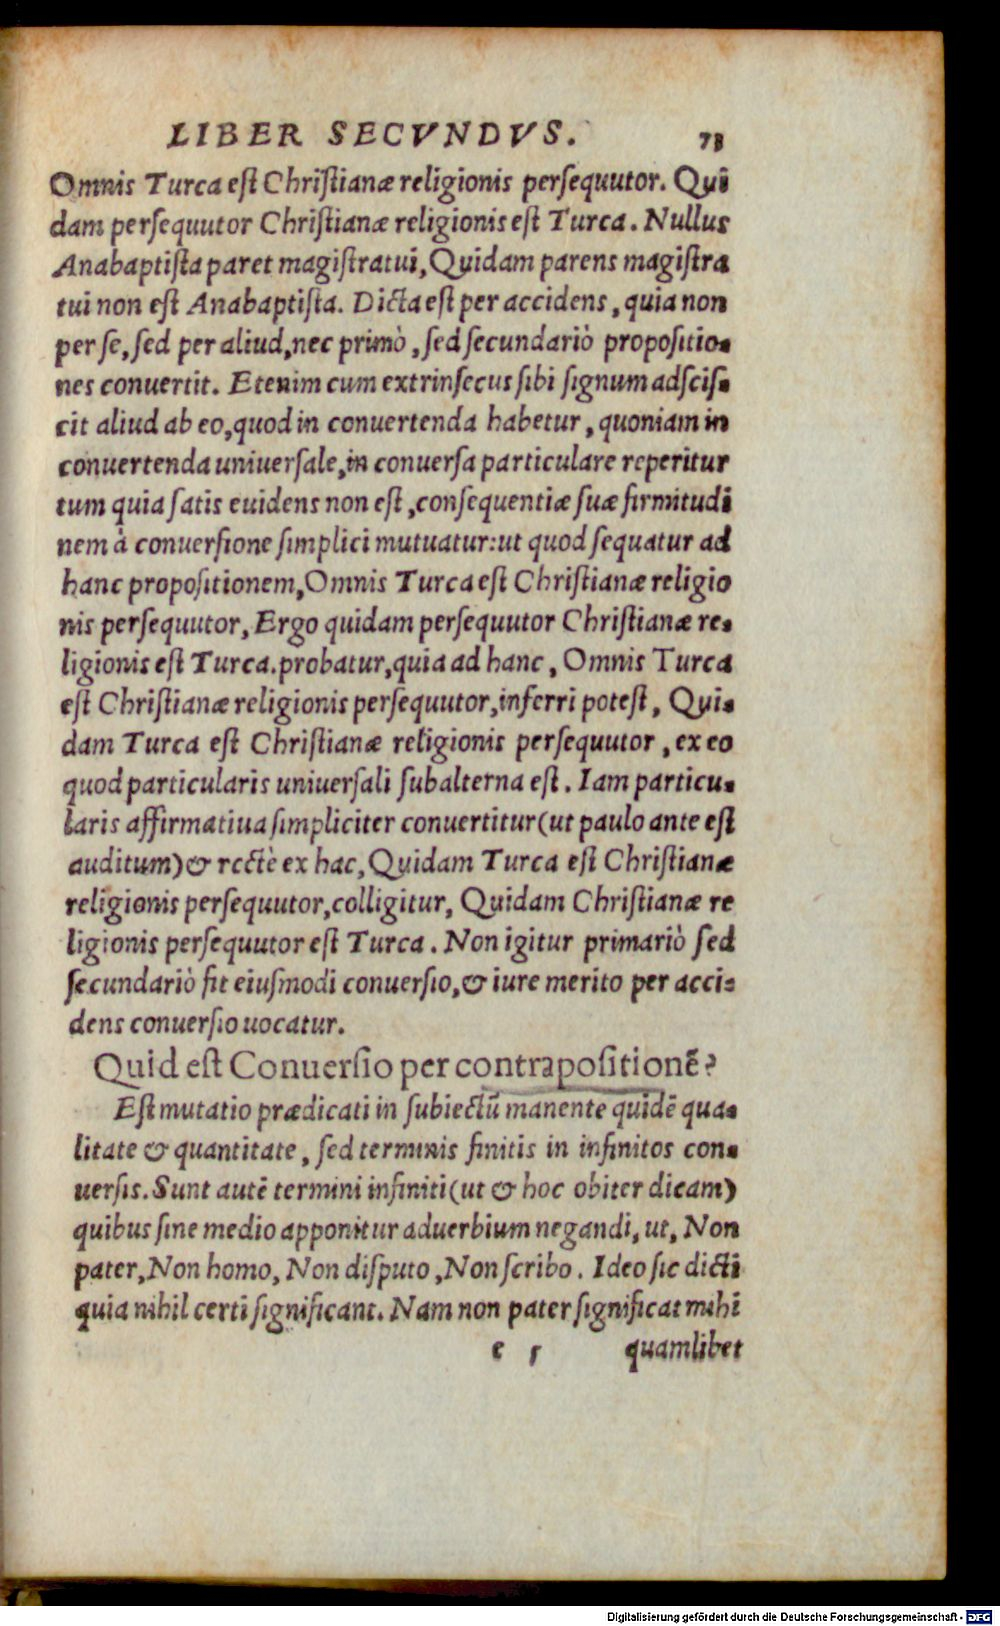 LIBER SECVNDVS. 73
Omnis Turca est Christianæ religionis persequutor. Qui
dam persequutor Christianæ religionis est Turca. Nullus
Anabaptista paret magistratui, Quidam parens magistra
tui non est Anabaptista. Dicta est per accidens, quia non
per se, sed per aliud, nec primò, sed secundariò propositio-
nes conuertit. Etenim cum extrinsecus sibi signum adscis-
cit aliud ab eo, quod in conuertenda habetur, quoniam in
conuertenda uniuersale, in conuersa particulare reperitur
tum quia satis euidens non est, consequentiæ suæ firmitudi
nem à conuersione simplici mutuatur: ut quod sequatur ad
hanc propositionem, Omnis Turca est Christianæ religio
nis persequutor, Ergo quidam persequutor Christianæ re-
ligionis est Turca. probatur, quia ad hanc, Omnis Turca
est Christianæ religionis persequutor, inferri potest, Qui-
dam Turca est Christianæ religionis persequutor, ex eo
quod particularis uniuersali subalterna est. Iam particu-
laris affirmatiua simpliciter conuertitur (ut paulo ante est
auditum) & rectè ex hac, Quidam Turca est Christianæ
religionis persequutor, colligitur, Quidam Christianæ re
ligionis persequutor est Turca. Non igitur primariò sed
secundariò fit eiusmodi conuersio, & iure merito per acci-
dens conuersio uocatur.
Quid est Conuersio per contrapositionē?
Est mutatio prædicati in subiectū manente quidē qua-
litate & quantitate, sed terminis finitis in infinitos con-
uersis. Sunt autē termini infiniti (ut & hoc obiter dicam)
quibus sine medio apponitur aduerbium negandi, ut, Non
pater, Non homo, Non disputo, Non scribo. Ideo sic dicti
quia nihil certi significant. Nam non pater significat mihi
e 5 quamlibet
Digitalisierung gefördert durch die Deutsche Forschungsgemeinschaft - DFG